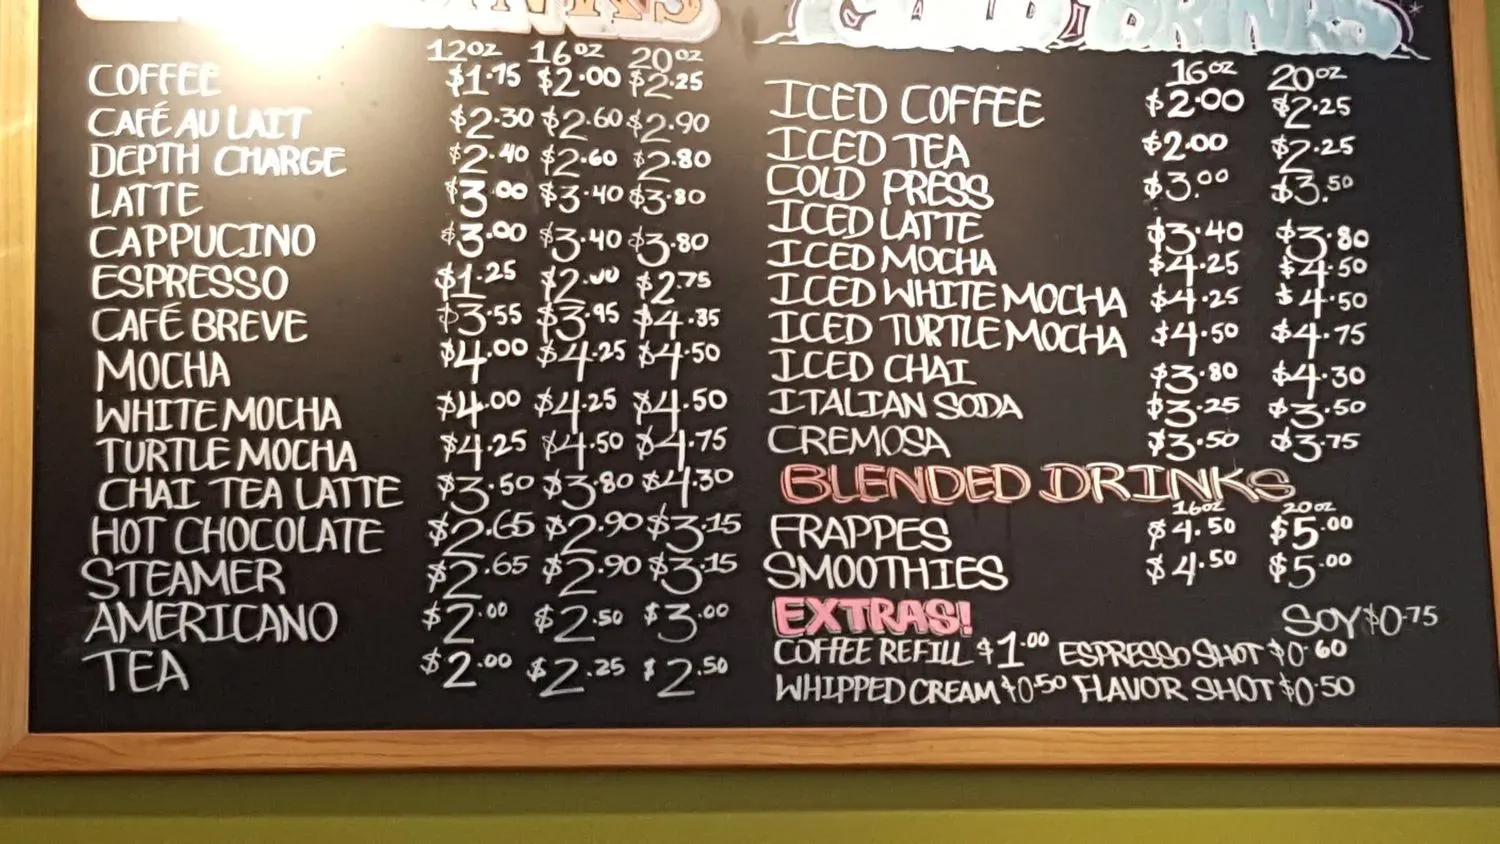 DRINKS
12oz 16oz 20oz
COFFEE $1.75 $2.00 $2.25
CAFÉ AU LAIT $2.30 $2.60 $2.90
DEPTH CHARGE $2.40 $2.60 $2.80
LATTE $3.00 $3.40 $3.80
CAPPUCINO $3.00 $3.40 $3.80
ESPRESSO $1.25 $2.00 $2.75
CAFÉ BREVE $3.55 $3.95 $4.35
MOCHA $4.00 $4.25 $4.50
WHITE MOCHA $4.00 $4.25 $4.50
TURTLE MOCHA $4.25 $4.50 $4.75
CHAI TEA LATTE $3.50 $3.80 $4.30
HOT CHOCOLATE $2.65 $2.90 $3.15
STEAMER $2.65 $2.90 $3.15
AMERICANO $2.00 $2.50 $3.00
TEA $2.00 $2.25 $2.50
COLD DRINKS
16oz 20oz
ICED COFFEE $2.00 $2.25
ICED TEA $2.00 $2.25
COLD PRESS $3.00 $3.50
ICED LATTE $3.40 $3.80
ICED MOCHA $4.25 $4.50
ICED WHITE MOCHA $4.25 $4.50
ICED TURTLE MOCHA $4.50 $4.75
ICED CHAI $3.80 $4.30
ITALIAN SODA $3.25 $3.50
CREMOSA $3.50 $3.75
BLENDED DRINKS
16oz 20oz
FRAPPES $4.50 $5.00
SMOOTHIES $4.50 $5.00
EXTRAS! SOY $0.75
COFFEE REFILL $1.00 ESPRESSO SHOT $0.60
WHIPPED CREAM $0.50 FLAVOR SHOT $0.50